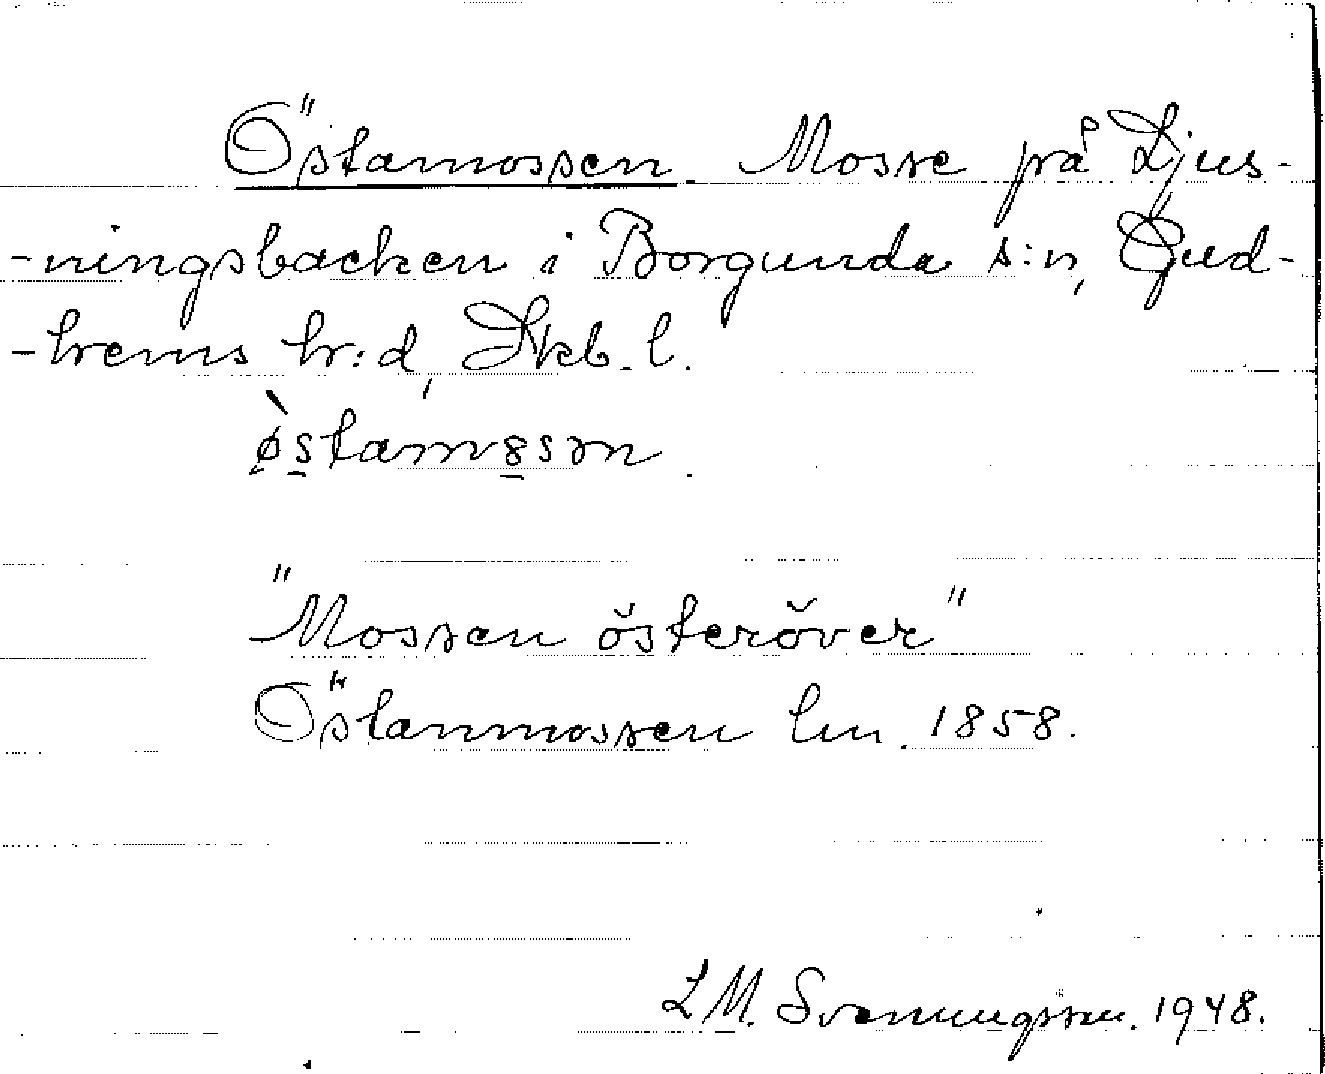 Östamossen. Mosse på Ljus-
-ningsbacken i Borgunda s:n, Gud-
-hems hr:d, Skb. l.
"Mossen österöver"
Östanmossen lm. 1858.
L M. Svenungsson. 1948.